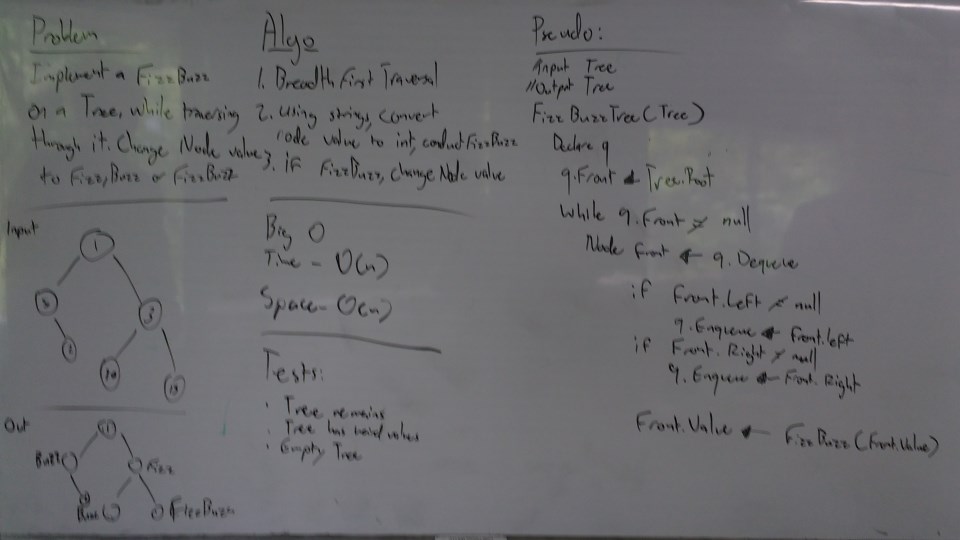 Problem
Implement a FizzBuzz
on a Tree, while traversing
through it. Change Node value
to Fizz, Buzz or FizzBuzz
Input
1
5
3
10
15
Out
1
Buzz
Fizz
Buzz
FizzBuzz
Algo
1. Breadth First Traversal
2. using strings, convert
node value to int, conduct FizzBuzz
3. if FizzBuzz, change Node value
Big O
Time - O(n)
Space - O(n)
Tests:
· Tree remains
· Tree has values
· Empty Tree
Pseudo:
//Input Tree
//Output Tree
FizzBuzzTree(Tree)
Declare q
q.Front ← Tree.Root
While q.Front ≠ null
Node front ← q.Dequeue
if Front.Left ≠ null
q.Enqueue ← Front.left
if Front.Right ≠ null
q.Enqueue ← Front.Right
Front.Value ← FizzBuzz(Front.Value)